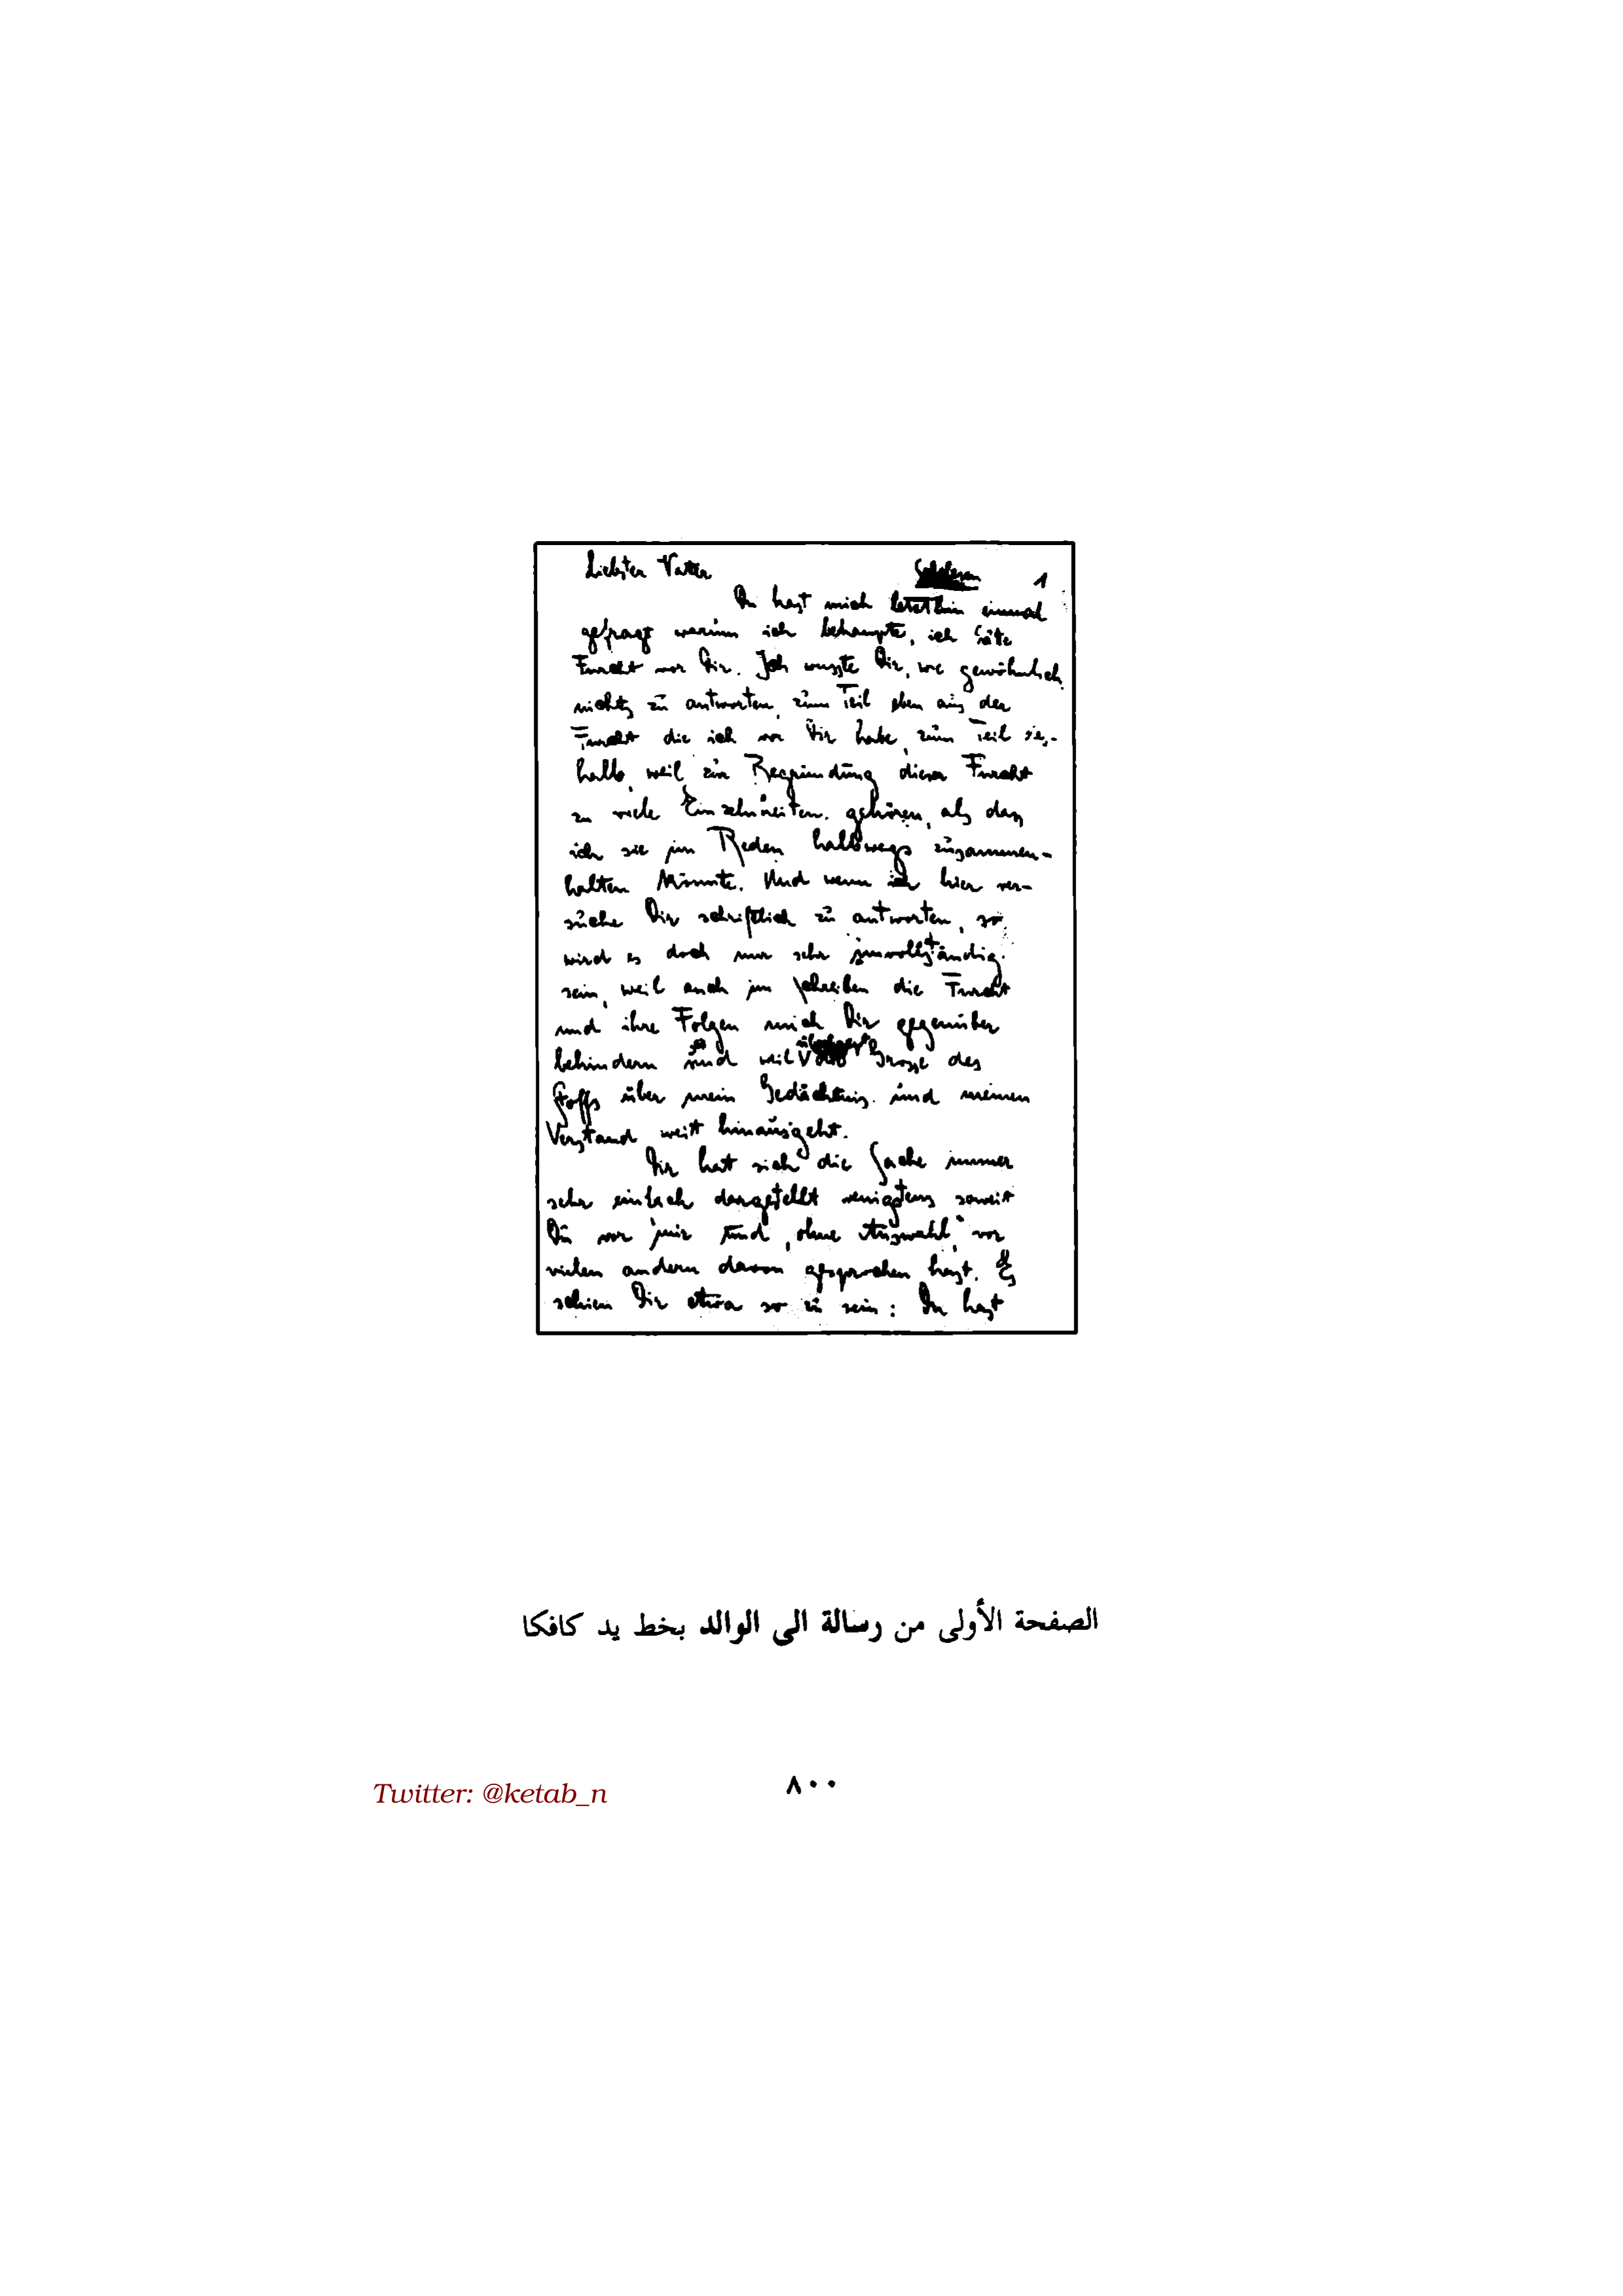 Liebster Vater
Schelesen 1
Du hast mich letzthin einmal
gefragt warum ich behaupte, ich hätte
Furcht vor Dir. Ich wusste Dir, wie gewöhnlich
nichts zu antworten, zum Teil eben aus der
Furcht die ich vor Dir habe, zum Teil des-
halb, weil zur Begründung dieser Furcht
zu viele Einzelnheiten gehören, als dass
ich sie im Reden halbwegs zusammen-
halten könnte. Und wenn ich hier ver-
suche Dir schriftlich zu antworten, so
wird es doch nur sehr unvollständig
sein, weil auch im Schreiben die Furcht
und ihre Folgen mich Dir gegenüber
behindern und weil Grösse des
Stoffs über mein Gedächtnis und meinen
Verstand weit hinausgeht.
Dir hat sich die Sache immer
sehr einfach dargestellt wenigstens soweit
Du vor mir und, ohne Auswahl, vor
vielen andern davon gesprochen hast. Es
schien Dir etwa so zu sein: Du hast
الصفحة الأولى من رسالة الى الوالد بخط يد كافكا
٨٠٠
Twitter: @ketab_n